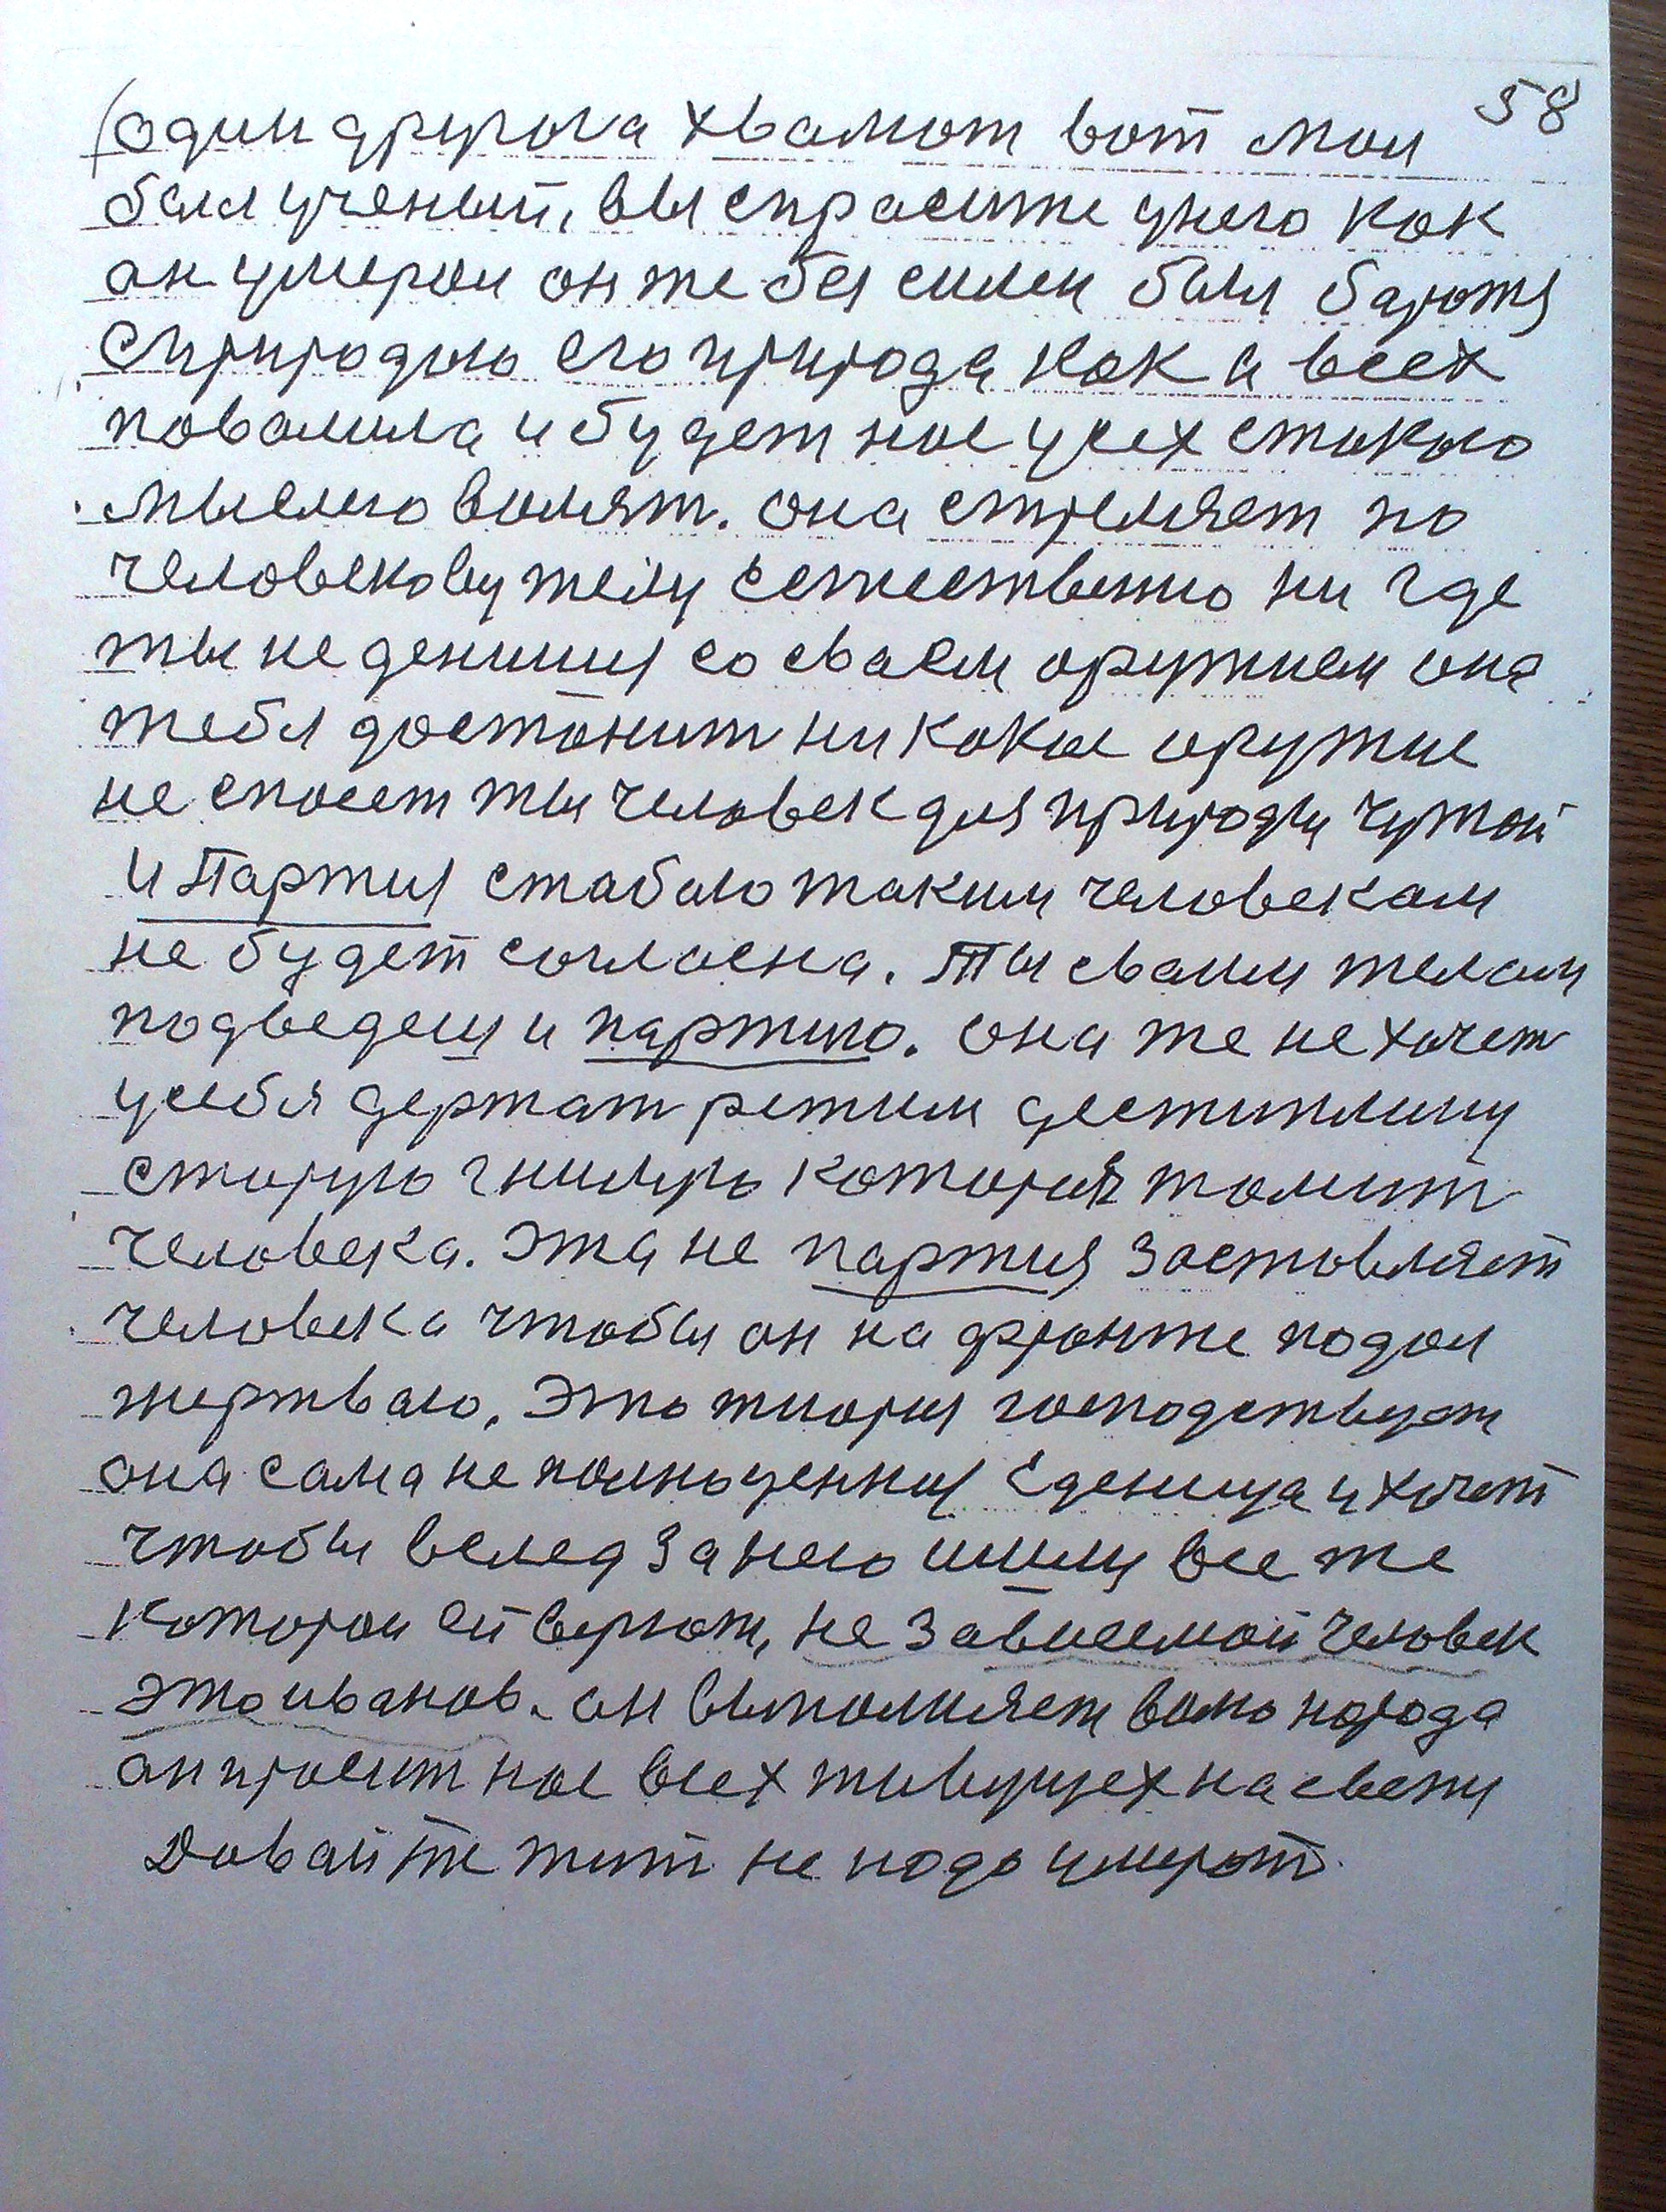 58
(один другога хвалют вот мол
был ученый, вы спрасите унего как
ан умерал он же бел силен был баротя
сприродою его природа как и всех
повалила и будет нас усех стакою
мыслею волят. она стреляет по
человекову телу естественно ни где
ты не дениша со сваем оружием она
тебя достанит ни какое оружие
не спасет ты человек для природы чужой
и Партия стабаю таким человекам
не будет согласна. Ты сваим телам
подведеш и партию. она же не хочет
усебя держат режим дестиплину
старую гнилую которыя томит
человека. эта не партия заставляет
человека чтобы он на фронте подал
жертваю, Это тиория господствует
она сама не полноценныя Еденица и хочет
чтобы вслед занею шили все те
которыи ей верют, не зависемой человек
это иванов. он выполняет волю народа
ан просит нас всех живущех на свету
Давайте жит не надо умерат.